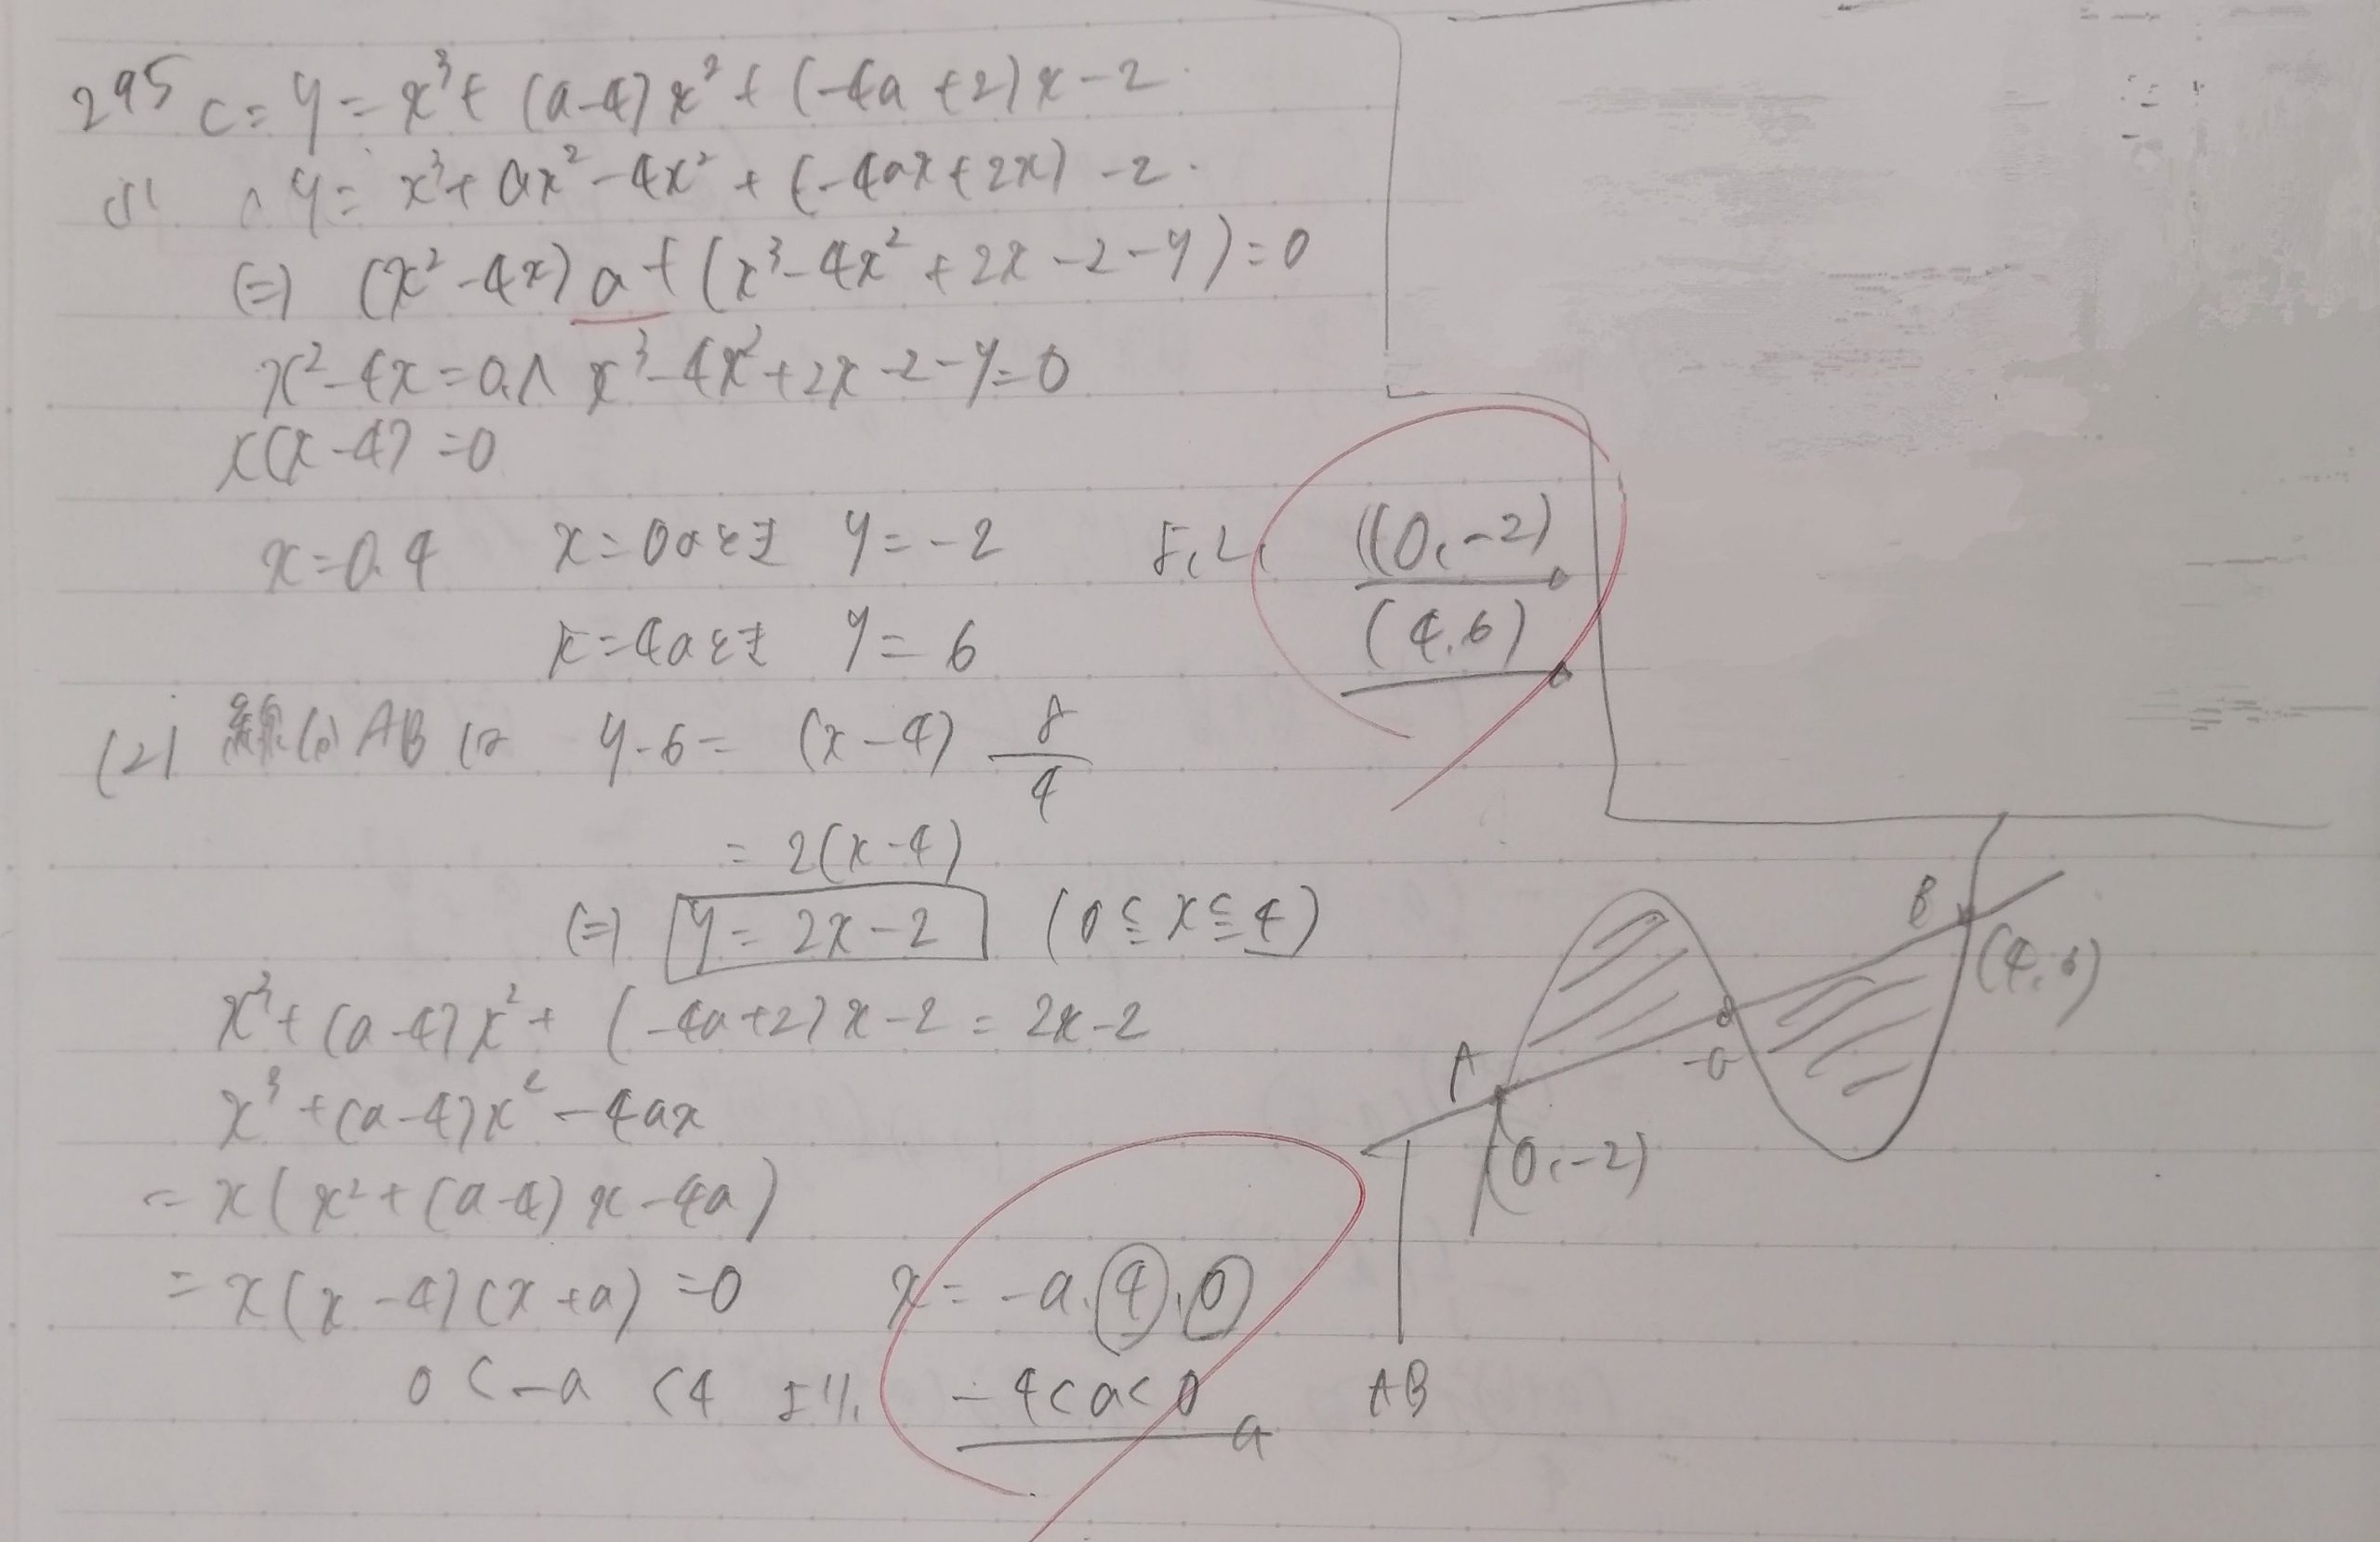 295 C = y = x³ + (a-4)x² + (-4a+2)x - 2
(1) y = x³ + ax² - 4x² + (-4ax + 2x) - 2
(=) (x² - 4x)a + (x³ - 4x² + 2x - 2 - y) = 0
x² - 4x = 0 ∧ x³ - 4x² + 2x - 2 - y = 0
x(x-4) = 0
x = 0, 4 x = 0のとき y = -2 よって (0, -2)
x = 4のとき y = 6 (4, 6)
(2) 線分ABは y - 6 = (x-4) 8/4
= 2(x-4)
(=) y = 2x - 2 (0 ≦ x ≦ 4)
x³ + (a-4)x² + (-4a+2)x - 2 = 2x - 2
x³ + (a-4)x² - 4ax
= x(x² + (a-4)x - 4a)
= x(x-4)(x+a) = 0 x = -a, 4, 0
0 < -a < 4 より, -4 < a < 0
B
(4, 6)
-a
A
(0, -2)
AB